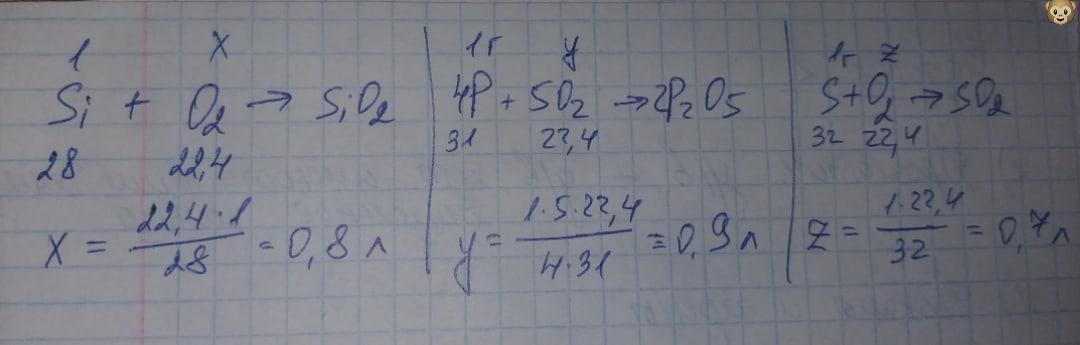 1 x
Si + O2 → SiO2
28 22,4
x = 22,4 · 1 / 28 = 0,8 л
1г y
4P + 5O2 → 2P2O5
31 22,4
y = 1·5·22,4 / 4·31 = 0,9 л
1г z
S + O2 → SO2
32 22,4
z = 1·22,4 / 32 = 0,7 л